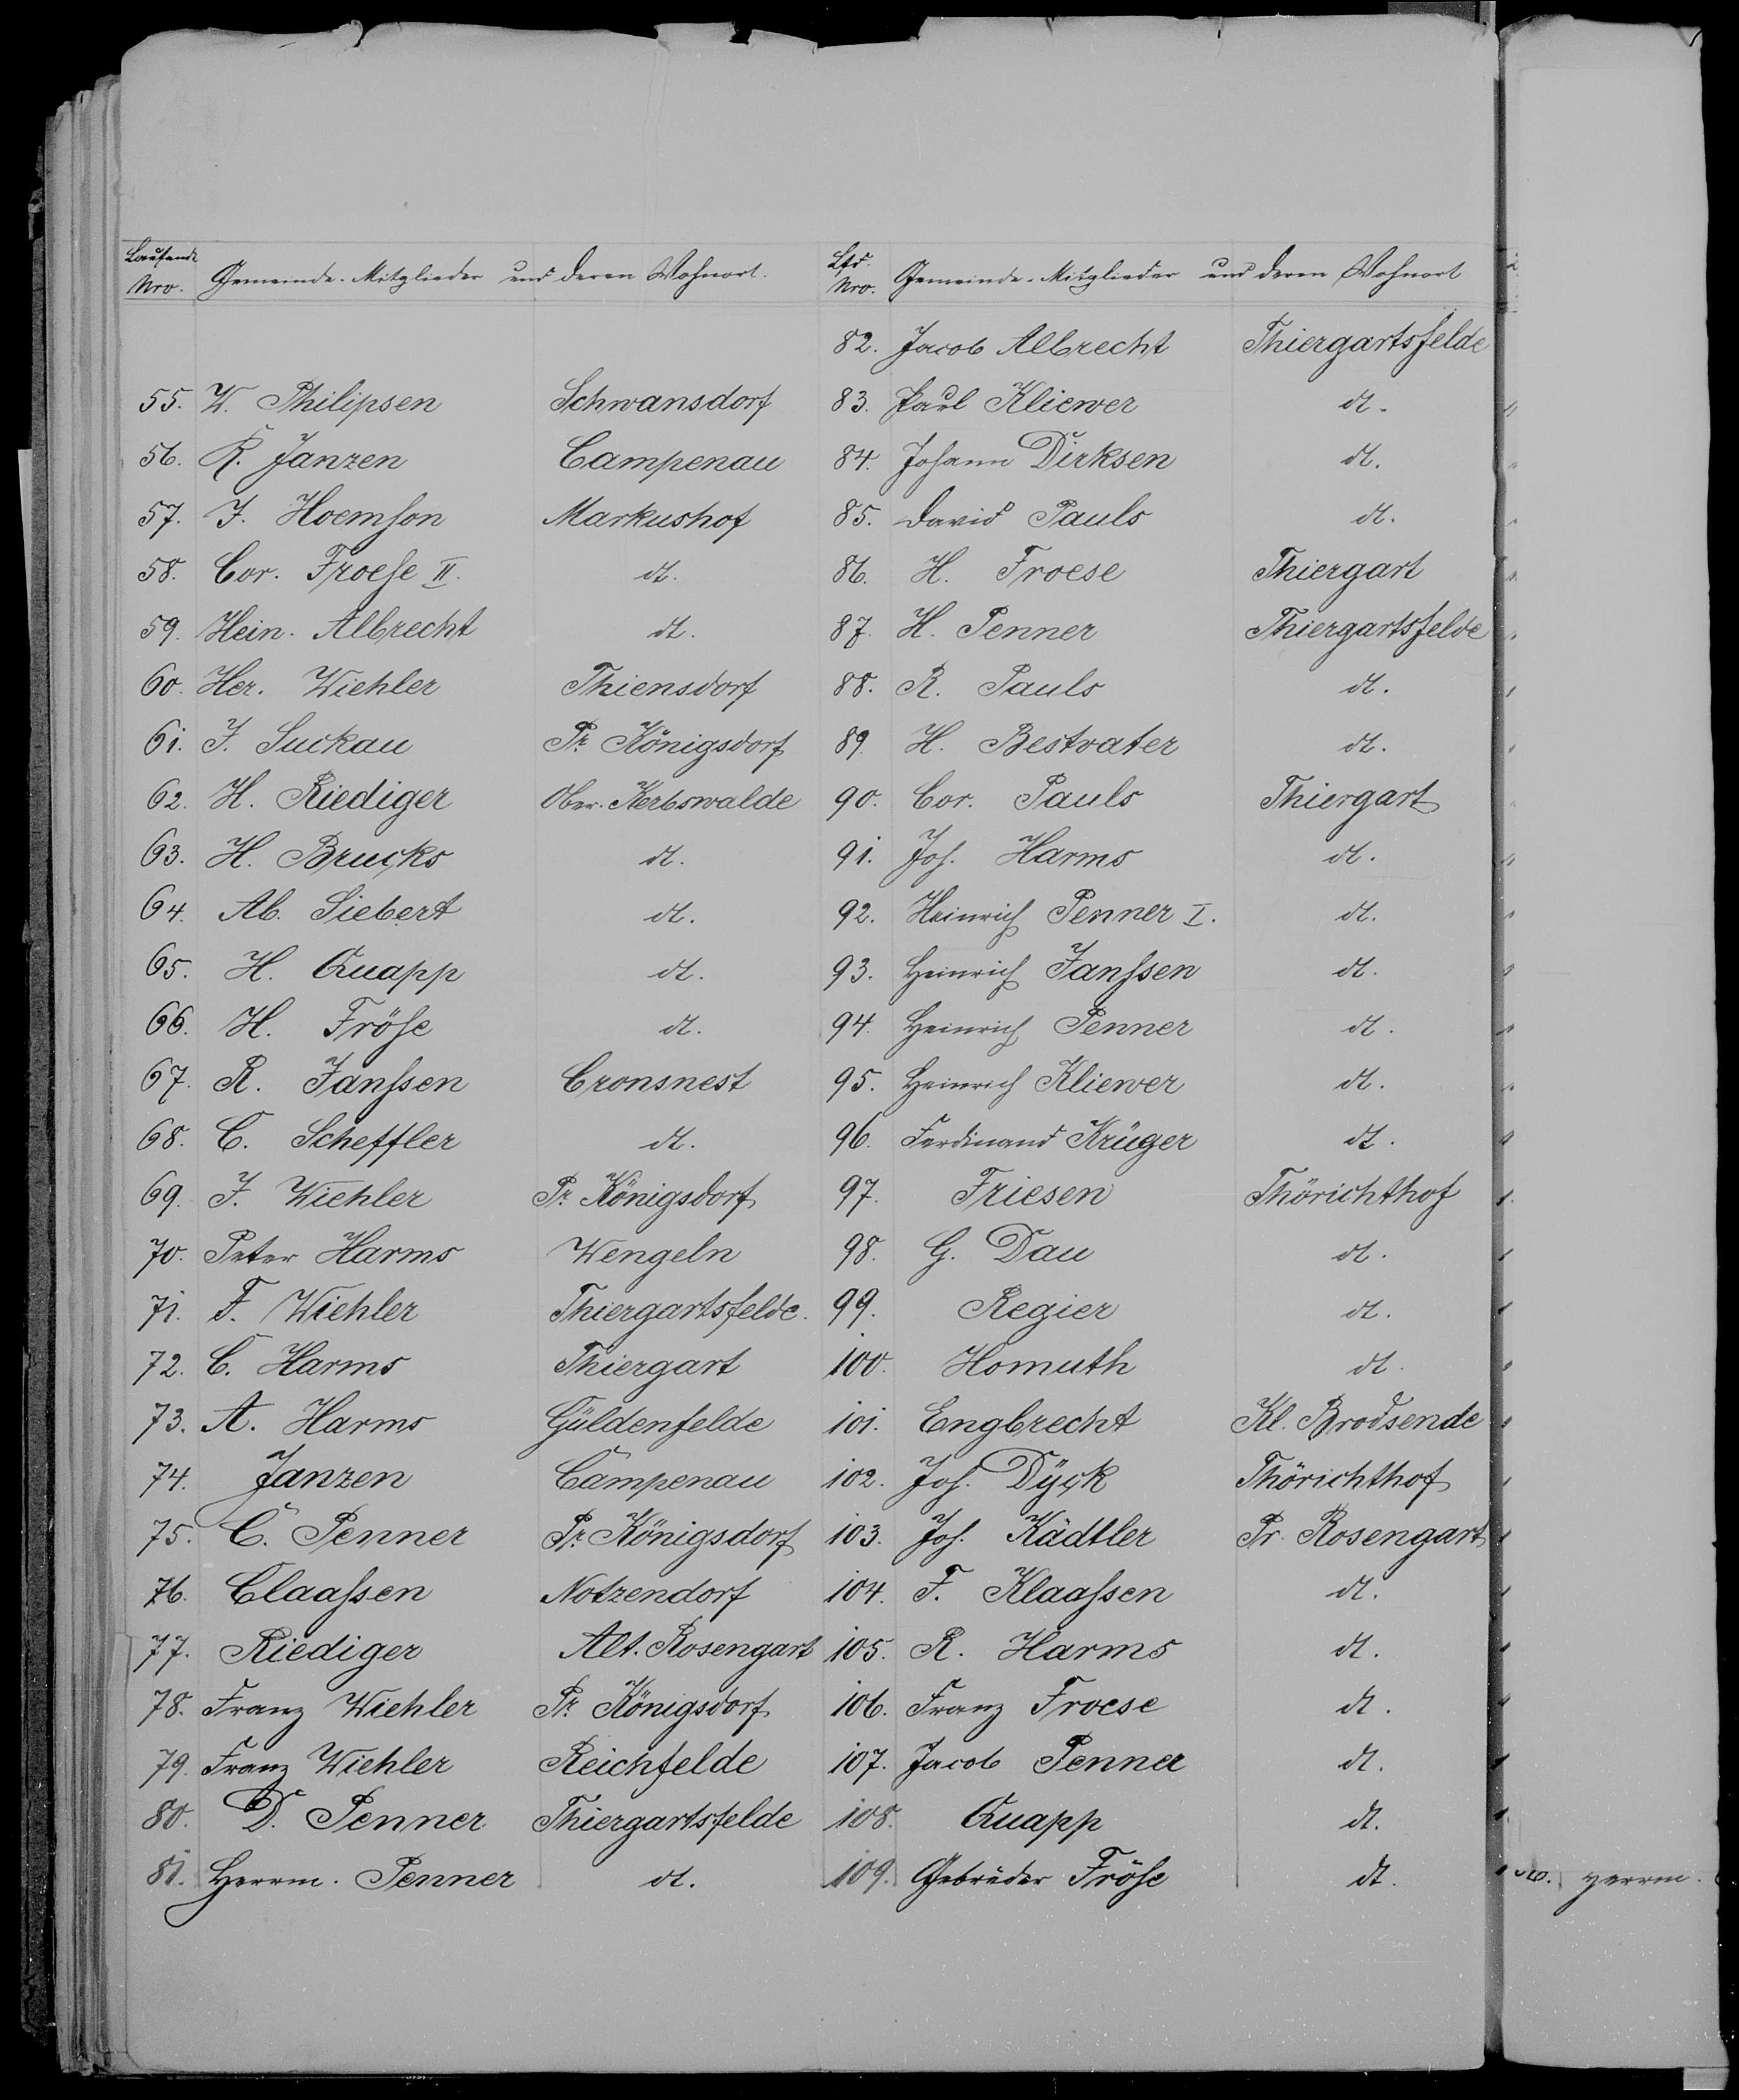 Laufende Nro. Gemeinde-Mitglieder und deren Wohnort.
55. W. Philipsen Schwansdorf
56. R. Janzen Campenau
57. J. Hoemson Markushof
58. Cor. Froese II. dt.
59. Hein. Albrecht dt.
60. Her. Wiehler Thiensdorf
61. J. Suckau Pr. Königsdorf
62. H. Riediger Ober-Kerbswalde
63. H. Brucks dt.
64. Ab. Siebert dt.
65. H. Quapp dt.
66. H. Fröse dt.
67. R. Janssen Cronsnest
68. C. Scheffler dt.
69. J. Wiehler Pr. Königsdorf
70. Peter Harms Wengeln
71. F. Wiehler Thiergartsfelde.
72. C. Harms Thiergart
73. A. Harms Güldenfelde
74. Janzen Campenau
75. C. Penner Pr. Königsdorf
76. Claassen Notzendorf
77. Riediger Alt. Rosengart
78. Franz Wiehler Pr. Königsdorf
79. Franz Wiehler Reichfelde
80. D. Penner Thiergartsfelde
81. Herrm. Penner dt.
Lfd. Nro. Gemeinde-Mitglieder und deren Wohnort
82. Jacob Albrecht Thiergartsfelde
83. Paul Kliewer dt.
84. Johann Dirksen dt.
85. David Pauls dt.
86. H. Froese Thiergart
87. H. Penner Thiergartsfelde
88. R. Pauls dt.
89. H. Bestvater dt.
90. Cor. Pauls Thiergart
91. Joh. Harms dt.
92. Heinrich Penner I. dt.
93. Heinrich Janssen dt.
94. Heinrich Penner dt.
95. Heinrich Kliewer dt.
96. Ferdinand Krüger dt.
97. Friesen Thörichthof
98. G. Dau dt.
99. Regier dt.
100. Homuth dt.
101. Engbrecht Kl. Brodsende
102. Joh. Dÿck Thörichthof
103. Joh. Kädtler Pr. Rosengart
104. F. Klaassen dt.
105. R. Harms dt.
106. Franz Froese dt.
107. Jacob Penner dt.
108. Quapp dt.
109. Gebrüder Fröse dt.